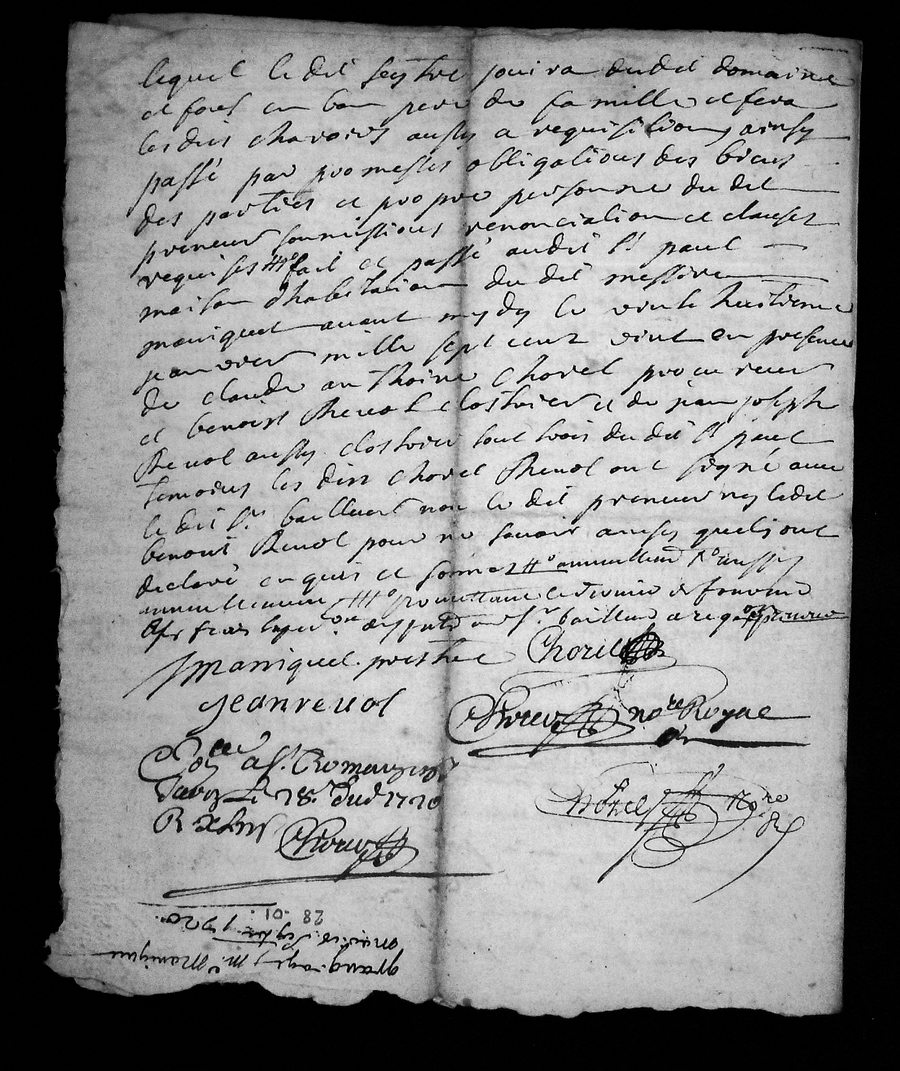 lequel ledit seytre jouira dudit domaine
et fons en bon pere de famille et fera
les dits charoirs aussy a requisition, ainsy
passé par promesses obligations des biens
des parties et propre personne du dit
preneur soumissions renonciation et clauses
requises fait et passé audit St paul
maison d'habitation du dit messire
maniquet avant mydy le vint huitieme
jeanvier mille sept cent vint en presence
de claude anthoine chorel procureur
et benoist Revol clostrier et de jean joseph
Revol aussy clostrier tout trois du dit St paul
temoins les dits chorel Revol ont signé avec
le dit Sr bailleur non le dit preneur ny ledit
benoist Revol pour ne savoir ainsy quels ont
declaré enquis et sommes annuellement aussy
annuellement promettant le dernier de fournir
frais expedition au Sr bailleur
Maniquet prestre Chorel
jean revol
Chorel nore Royal
a St Romans
28e 1720
R
Chorel
nore
28 - 01 -
1720
grangeage Mr Maniquet